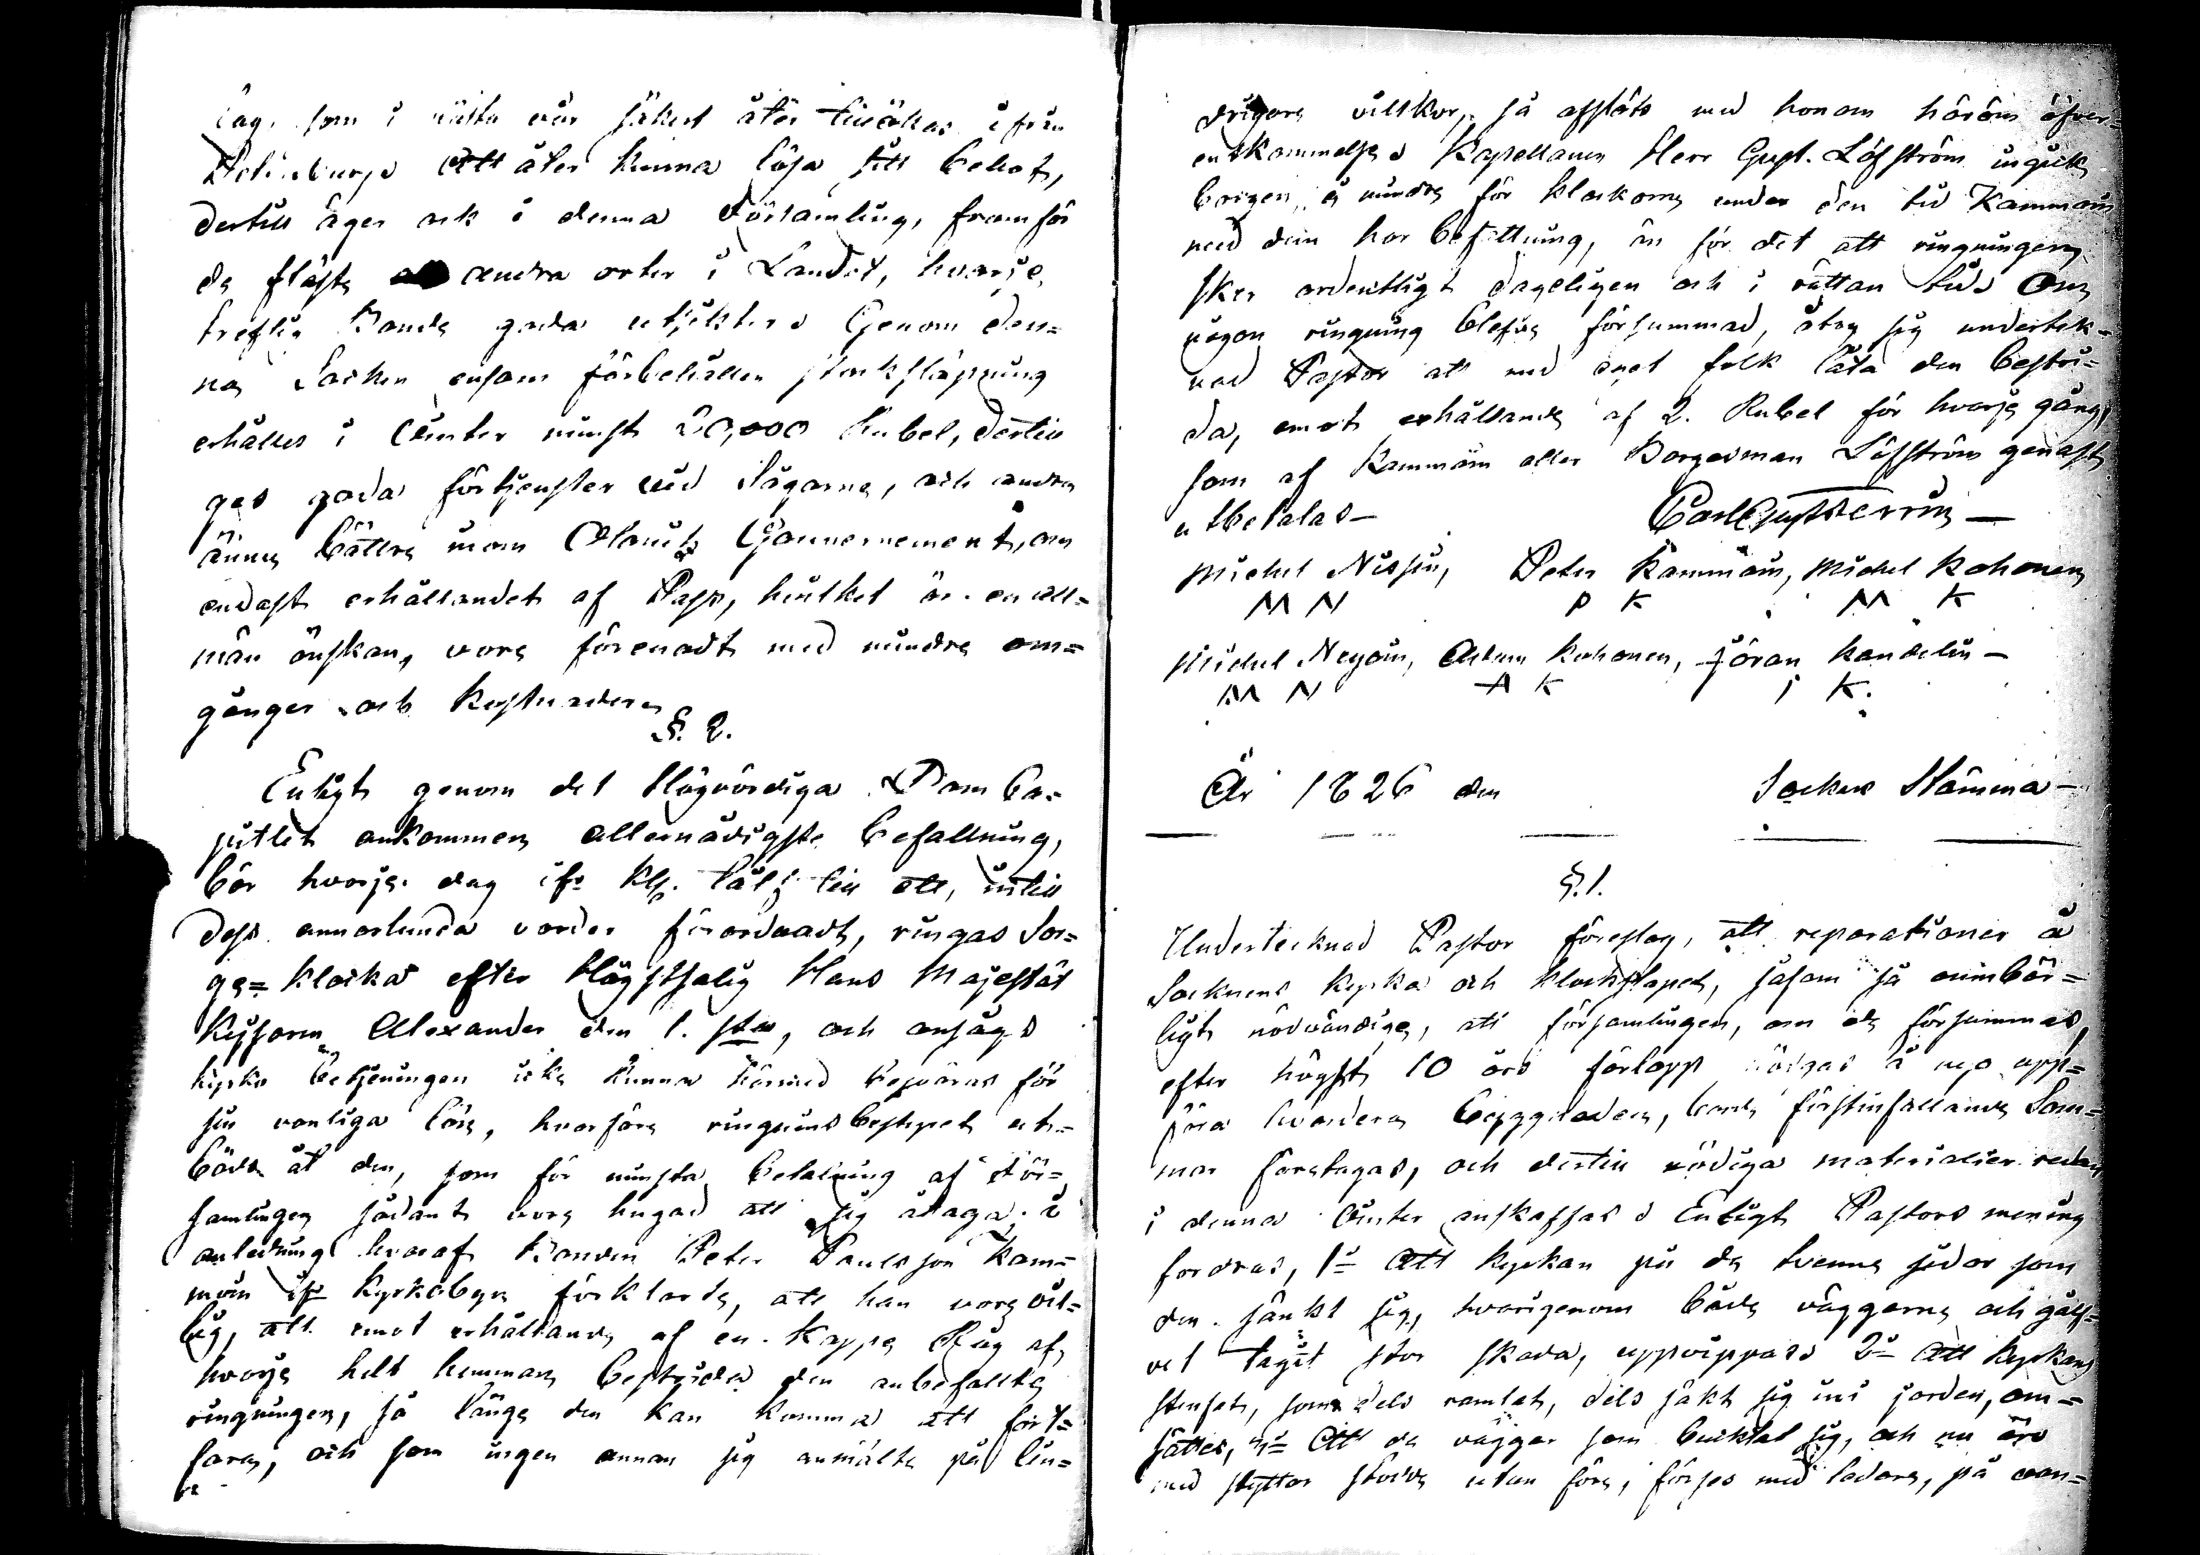 som i nästa vår säkert åter tillökas ifrån
att åter kunna lösa sitt behof,
dertill äger ock i denna Församling, framför
de fläste andra orter i Landet, hvarje
treflig Bonde goda utsikter Genom den=
na Socken ensam förbehållen stocksläpning
erhålles i vinter minst 20,000 Rubel, dertill
ges goda förtjenster vid Sågarne, och andra
ännu bättre inom Olonetz Gouvernement, om
endast erhållandet af Pass, hvilket är en all=
män önskan, vore förenadt med mindre om=
gånger och kostnader
§. 2.
Enligt genom det Högvördiga Dom Ca=
pitlet ankommen allernådigste befallning,
bör hvarje dag ifr. Kl. tål till ett, intill
dess annorlunda varder förordnadt, ringas Sor=
ge=klocka efter Högstsalig Hans Majestät
Kejsaren Alexander den 1.sta, och ansågs
kyrko betjeningen icke kunna härmed besväras för
sin vanliga lön, hvarföre ringnings bestyret ut=
böds åt den, som för minsta betalning af För=
samlingen sådant vore hugad att sig åtaga, i
anledning hvaraf Bonden Peter Paulsson Kam=
möin ifr. Kyrkobyn förklarde, att han vore vil=
lig, att emot erhållande af en Kappe Råg af
hvarje helt hemman bestrida den anbefallte
ringningen, så länge den kan komma att fort=
fara, och som ingen annan sig anmälte på lin=
drigare villkor, så afslöts med honom härom öfver=
enskommelse Kapellanen Herr Gust. Löfström ingick
borgen, ej mindre för klockorne under den tid Kammöin
med dem har befattning, än för det att ringningen
sker ordentligt dageligen och i rättan tid Om
någon ringning blefve försummad, åtog sig underteck=
nad Pastor att med eget folk låta den bestri=
da, emot erhållande af 2. Rubel för hvarje gång,
som af Kammöin eller Borgesman Löfström genast
utbetalas—
Michel Nissin, Peter Kammöin, Michel Kohonen
M N P K M K
Michel Neyöin, Adam Kohonen, Jöran Kandelin—
M N A K J K.
År 1826 den Socken Stämma—
§. 1.
Undertecknad Pastor föreslog, att reparationer å
Socknens kyrka och klockstapel, såsom så oumbär=
ligt nödvändige, att församlingen, om de försummas,
efter högst 10 års förlopp nödgas å nyo upp=
föra hvardera byggnaden, borde förstinfallande Som=
mar företagas, och dertill nödiga materialier redan
i denna vinter anskaffas Enligt Pastors mening
fordras, 1º att kyrkan på de tvenne sidor som
den sänkt sig, hvarigenom både väggarne och golf=
vet tagit stor skada, uppvippas 2º att kyrkans
stenfot, som dels ramlat, dels säkt sig in i jorden, om=
sättes, 3º Att de väggar som bucktat sig, och nu äro
med styttor stödde utan före, förses med ledare, på van=